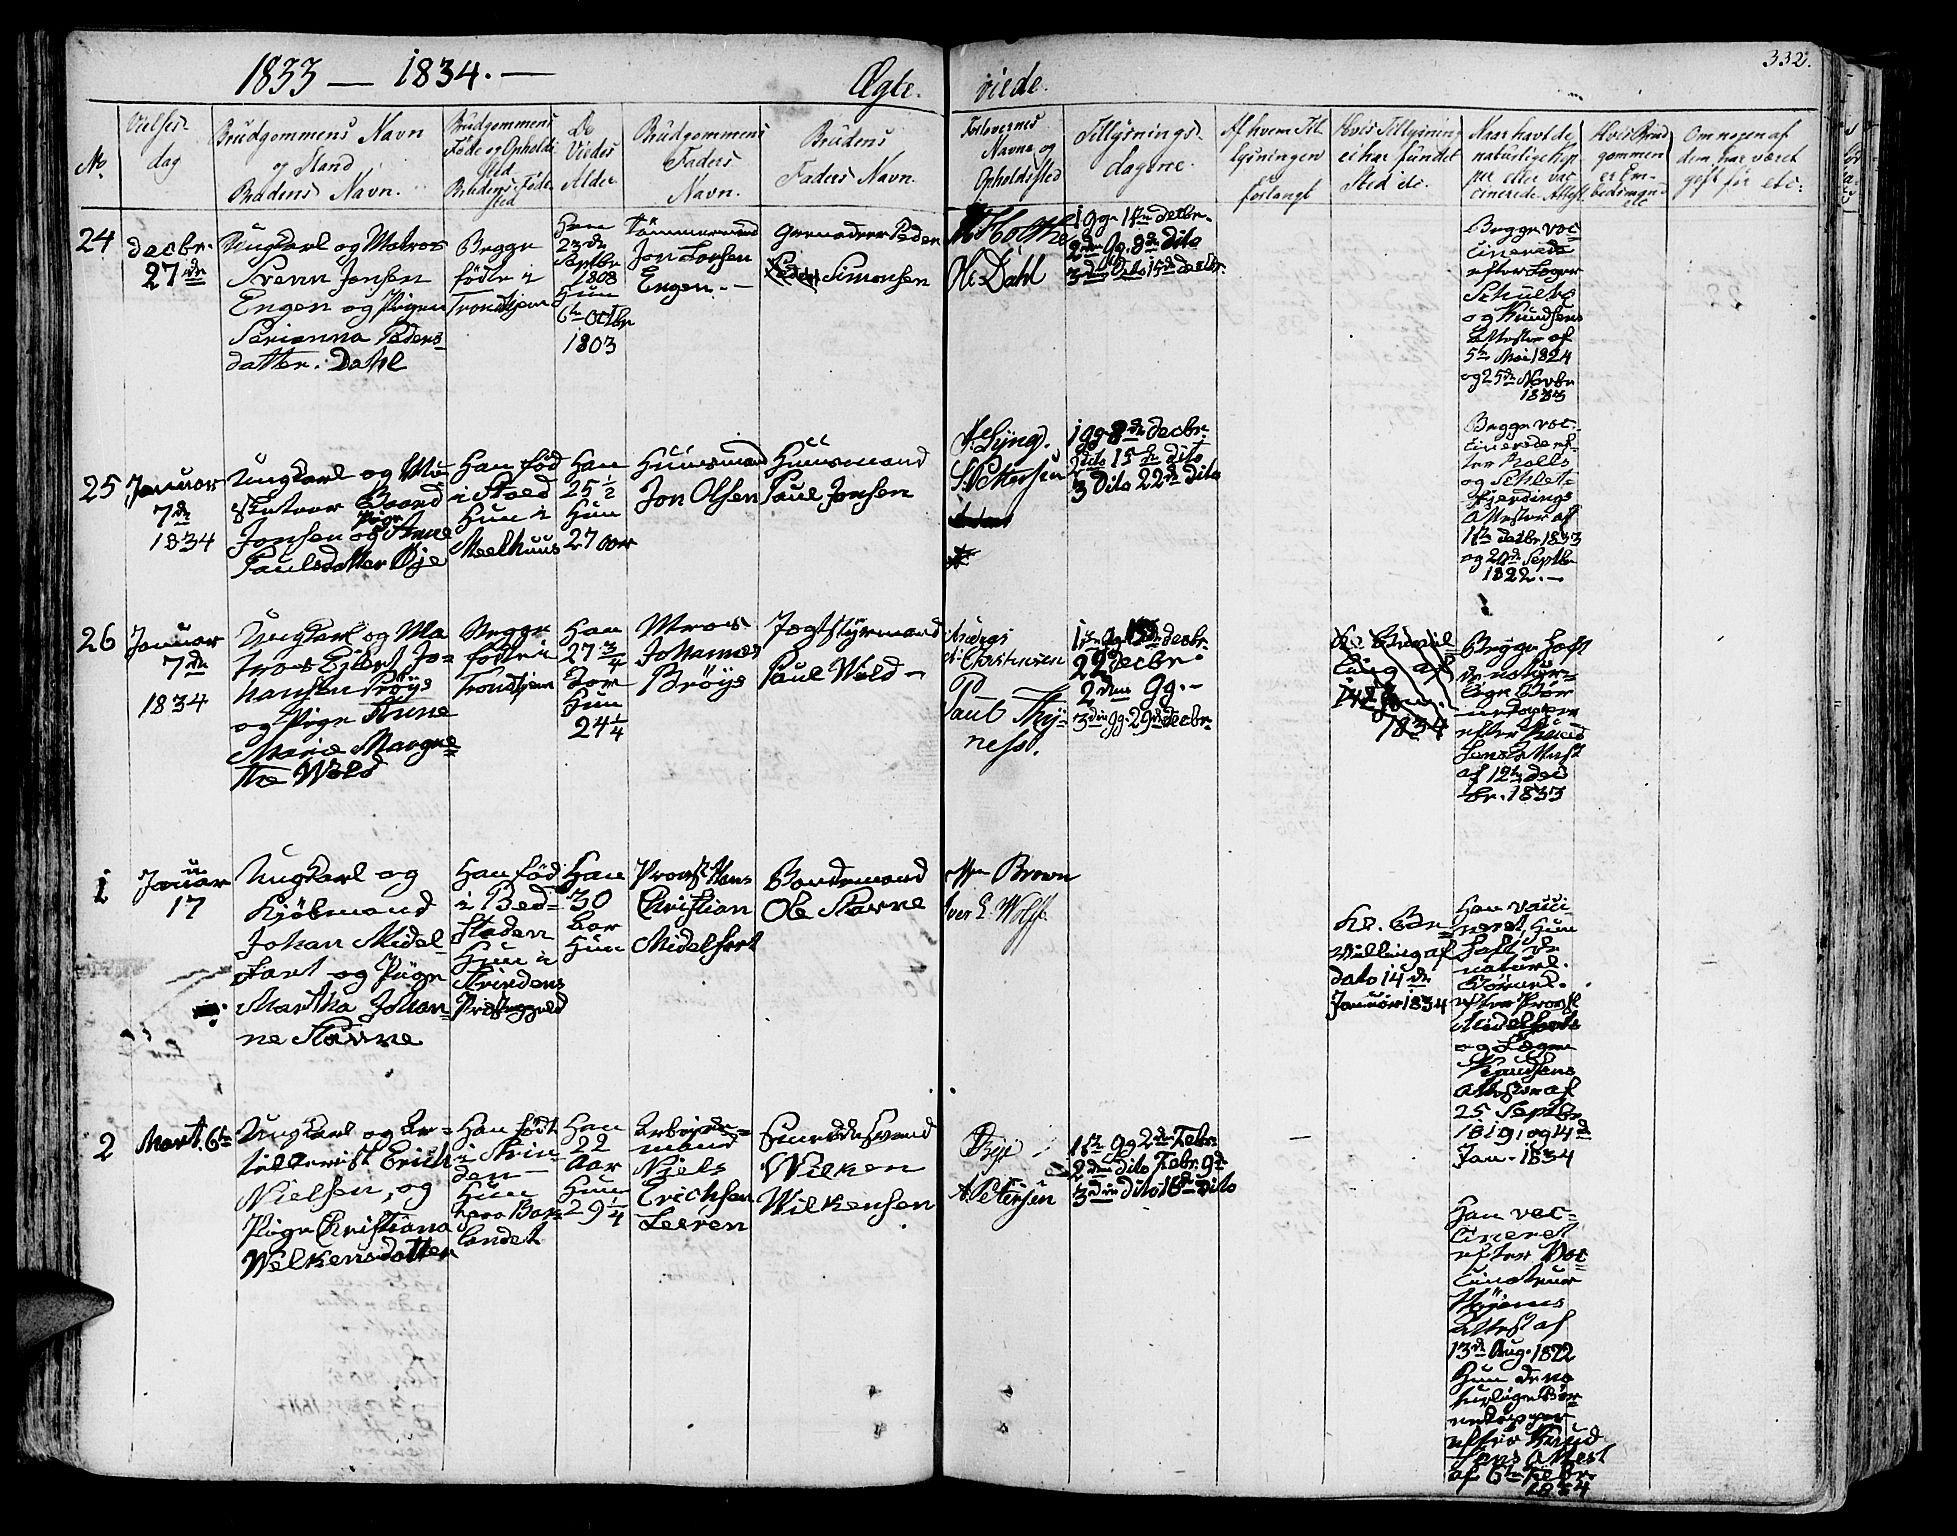 1833 — 1834. —
Ægte.
viede.
332.
No
Vielses-
dag
Brudgommens Navn
og Stand
Brudens Navn.
Brudgommens
Føde og Opholds
sted
Brudens Føde-
sted
De
Viedes
Alder
Brudgommens
Faders
Navn.
Brudens
Faders Navn.
Forlovernes
Navne og
Opholdssted
Tillysnings-
dagene.
Af hvem Til
lysningen
forlangt
Hvis Tillysning
ei har fundet
Sted da.
Naar havt de
naturlige Kop
per eller vac
cinerede. Attest
Hvis Brud
gommen
er Em-
bedsmand
etc
Om nogen af
dem har været
gift før etc:
24
Decbr.
27de
Ungkarl og Matros
Svenn Jonsen
Engen og Pigen
Serianna Peders-
datter. Dahl
Begge
fødte i
Trondhjem
Han
23de
Septbr
1808
Hun
6te Octbr
1803
Tømmermand
Jon Jonsen
Engen. —
Grenadeer Peder
Simonsen
Holthe
Ole Dahl
1 Gg. 1ste Decbr.
2den Gg. 8de Dito
3die Dito 15de Decbr.
Begge vac-
cinerede
efter Læger
Schultz
og Knudsens
Attester af
5te Mai 1824
og 25de Novbr
1833
25
Januar
7de
1834
Ungkarl og Mu
sketeer Baard
Jonsen og Pige Anne
Paulsdatter Øje
Han fød
i Stod
Hun i
Meelhuus
Han
25 1/2
Hun
27 Aar
Huusmand
Jon Olsen
Huusmand
Paul Jonsen
Lyng.
S. Pettersen
1 Gg 8de Decbr.
2 Dito 15de Dito
3 Dito 22de Dito
Begge vac-
cinerede ef-
ter
og Schlet-
Hjerdings
Attester af
1ste Decbr 1833
og 20de Septbr
1822. —
26
Januar
7de
1834
Ungkarl og Ma
tros Ejlert Jo-
hansen Brøys
og Pige Anne
Marie Margre-
the Wold
Begge
fødte i
Trondhjem
Han
27 3/4
Aar
Hun
24 1/4
Matros
Johannes
Brøys
Jagtstyrmand
Paul Wold —
Christensen
Paul
1ste Gg 15de Decbr.
22 Decbr.
2den Gg. —
3die Gg. 29de Decbr.
1834
Begge haft
de natur-
lige Bør
nekopper
efter
Attest
af 12te Dec
br. 1833
1
Januar
17
Ungkarl og
Kjøbmand
Johan Midel
fart og Pige
Martha Johan-
ne Stavne
Han fød
i Bed-
staden
Hun i
Strindens
Præstegjeld
Han
30
Aar
Hun
Provst Hans
Christian
Midelfart
Bondemand
Ole Stavne
Brown
Iver
Kg. Be-
villing af
dato 14de
Januar 1834
Han vacci
neret, Hun
haft de
naturl.
Børnek.
efter Provst
Midelfarts
og Læge
Knudsens
Attester af
25 Septbr
1819, og 4de
Jan. 1834
2
Mart. 6te
Ungkarl og Ar-
tillerist Erich
Nielsen, og
Pige Christiana
Wilkensdatter
Han født
i Strin-
den —
Hun
paa Bak-
landet
Han
22
Aar
Hun
29 1/4
Arbejds-
mand
Niels
Erichsen
Leeren
Smeddesvend
Wilken
Wilkensen
A. Petersen
1ste Gg 2den Febr.
2den Dito Febr. 9de
3die Dito 16de Dito
—
Han vac-
cineret
efter Vac-
cinateur
Attest af
13de Aug. 1822
Hun de na
turlige Bør-
nekopper
efter Knud
sens Attest
af 6te Febr.
1834